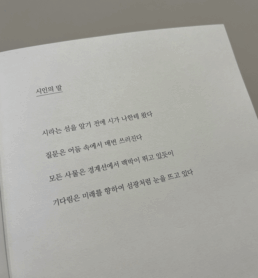 시인의 말
시라는 섬을 알기 전에 시가 나한테 왔다
질문은 어둠 속에서 매번 쓰러진다
모든 사물은 경계선에서 맥박이 뛰고 있듯이
기다림은 미래를 향하여 섬광처럼 눈을 뜨고 있다